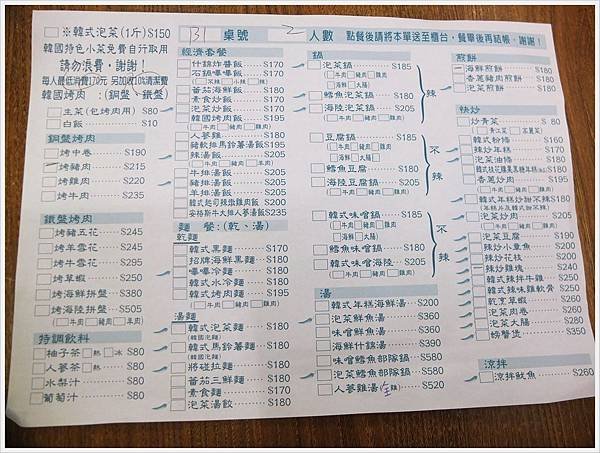 ※韓式泡菜(1斤)$150
韓國特色小菜免費自行取用
請勿浪費，謝謝！
每人最低消費170元 另加收10%清潔費
韓國烤肉：(銅盤、鐵盤)
生菜(包烤肉用) $80
白飯 $10
銅盤烤肉
烤中卷 $190
烤豬肉 $215
烤雞肉 $220
烤牛肉 $235
鐵盤烤肉
烤豬五花 $245
烤羊雪花 $245
烤牛雪花 $295
烤草蝦 $250
烤海鮮拼盤 $380
烤海陸拼盤 $505
(牛肉 豬肉 雞肉)
特調飲料
柚子茶(熱 冰) $80
人蔘茶(熱) $80
水梨汁 $80
葡萄汁 $80
13 桌號 2 人數 點餐後請將本單送至櫃台，餐畢後再結帳，謝謝！
經濟套餐
什錦炸醬飯 $170
石鍋嗶嗶飯 $170
蕃茄海鮮飯 $180
素食炒飯 $170
泡菜炒飯 $170
韓國烤肉飯 $195
(牛肉 豬肉 雞肉)
人蔘雞 $180
豬軟排馬鈴薯湯飯 $190
辣湯飯 $180
(牛肉 豬肉 羊肉)
牛排湯飯 $180
豬排湯飯 $180
羊排湯飯 $180
韓式起司辣燉雞肉飯 $200
安格斯牛大排人蔘湯飯 $235
麵 餐：(乾、湯)
乾麵
韓式黑麵 $170
招牌海鮮黑麵 $180
嗶嗶冷麵 $180
韓式水冷麵 $180
韓式烤肉麵 $195
(牛肉 豬肉 雞肉)
湯麵
韓式泡菜麵 $180
(韓國泡麵)
韓式馬鈴薯麵 $180
(韓國泡麵)
將碰拉麵 $180
蕃茄三鮮麵 $180
素食麵 $180
泡菜湯餃 $180
鍋
泡菜鍋 $185
(牛肉 豬肉 雞肉
海鮮 大腸)
鱈魚泡菜鍋 $180
海陸泡菜鍋 $205
(牛肉 豬肉 雞肉)
辣
豆腐鍋 $185
(牛肉 豬肉 雞肉
海鮮 大腸)
鱈魚豆腐 $180
海陸豆腐鍋 $205
(牛肉 豬肉 雞肉)
不辣
韓式味噌鍋 $185
(牛肉 豬肉 雞肉
海鮮 大腸)
鱈魚味噌鍋 $180
韓式味噌海陸 $205
(牛肉 豬肉 雞肉)
不辣
湯
韓式年糕海鮮湯 $200
泡菜鮮魚湯 $360
味噌鮮魚湯 $360
海鮮什錦湯 $390
味噌鱈魚部隊鍋 $580
泡菜鱈魚部隊鍋 $580
人蔘雞湯(全雞) $520
煎餅
海鮮煎餅 $180
香蔥豬肉煎餅 $180
泡菜煎餅 $180
快炒
炒青菜 $80
韓式粉條 $180
辣炒年糕 $170
泡菜油條 $180
香蔥炒肉 $190
韓式年糕炒甜不辣 $180
泡菜炒肉 $210
(牛肉 豬肉 雞肉)
泡菜豆腐 $190
辣炒小章魚 $200
辣炒花枝 $200
辣炒雞塊 $240
韓式辣拌牛雜 $210
韓式辣味雞軟骨 $210
乾烹草蝦 $260
泡菜肉卷 $260
泡菜大腸 $280
螃蟹煲 $350
涼拌
涼拌魷魚 $260